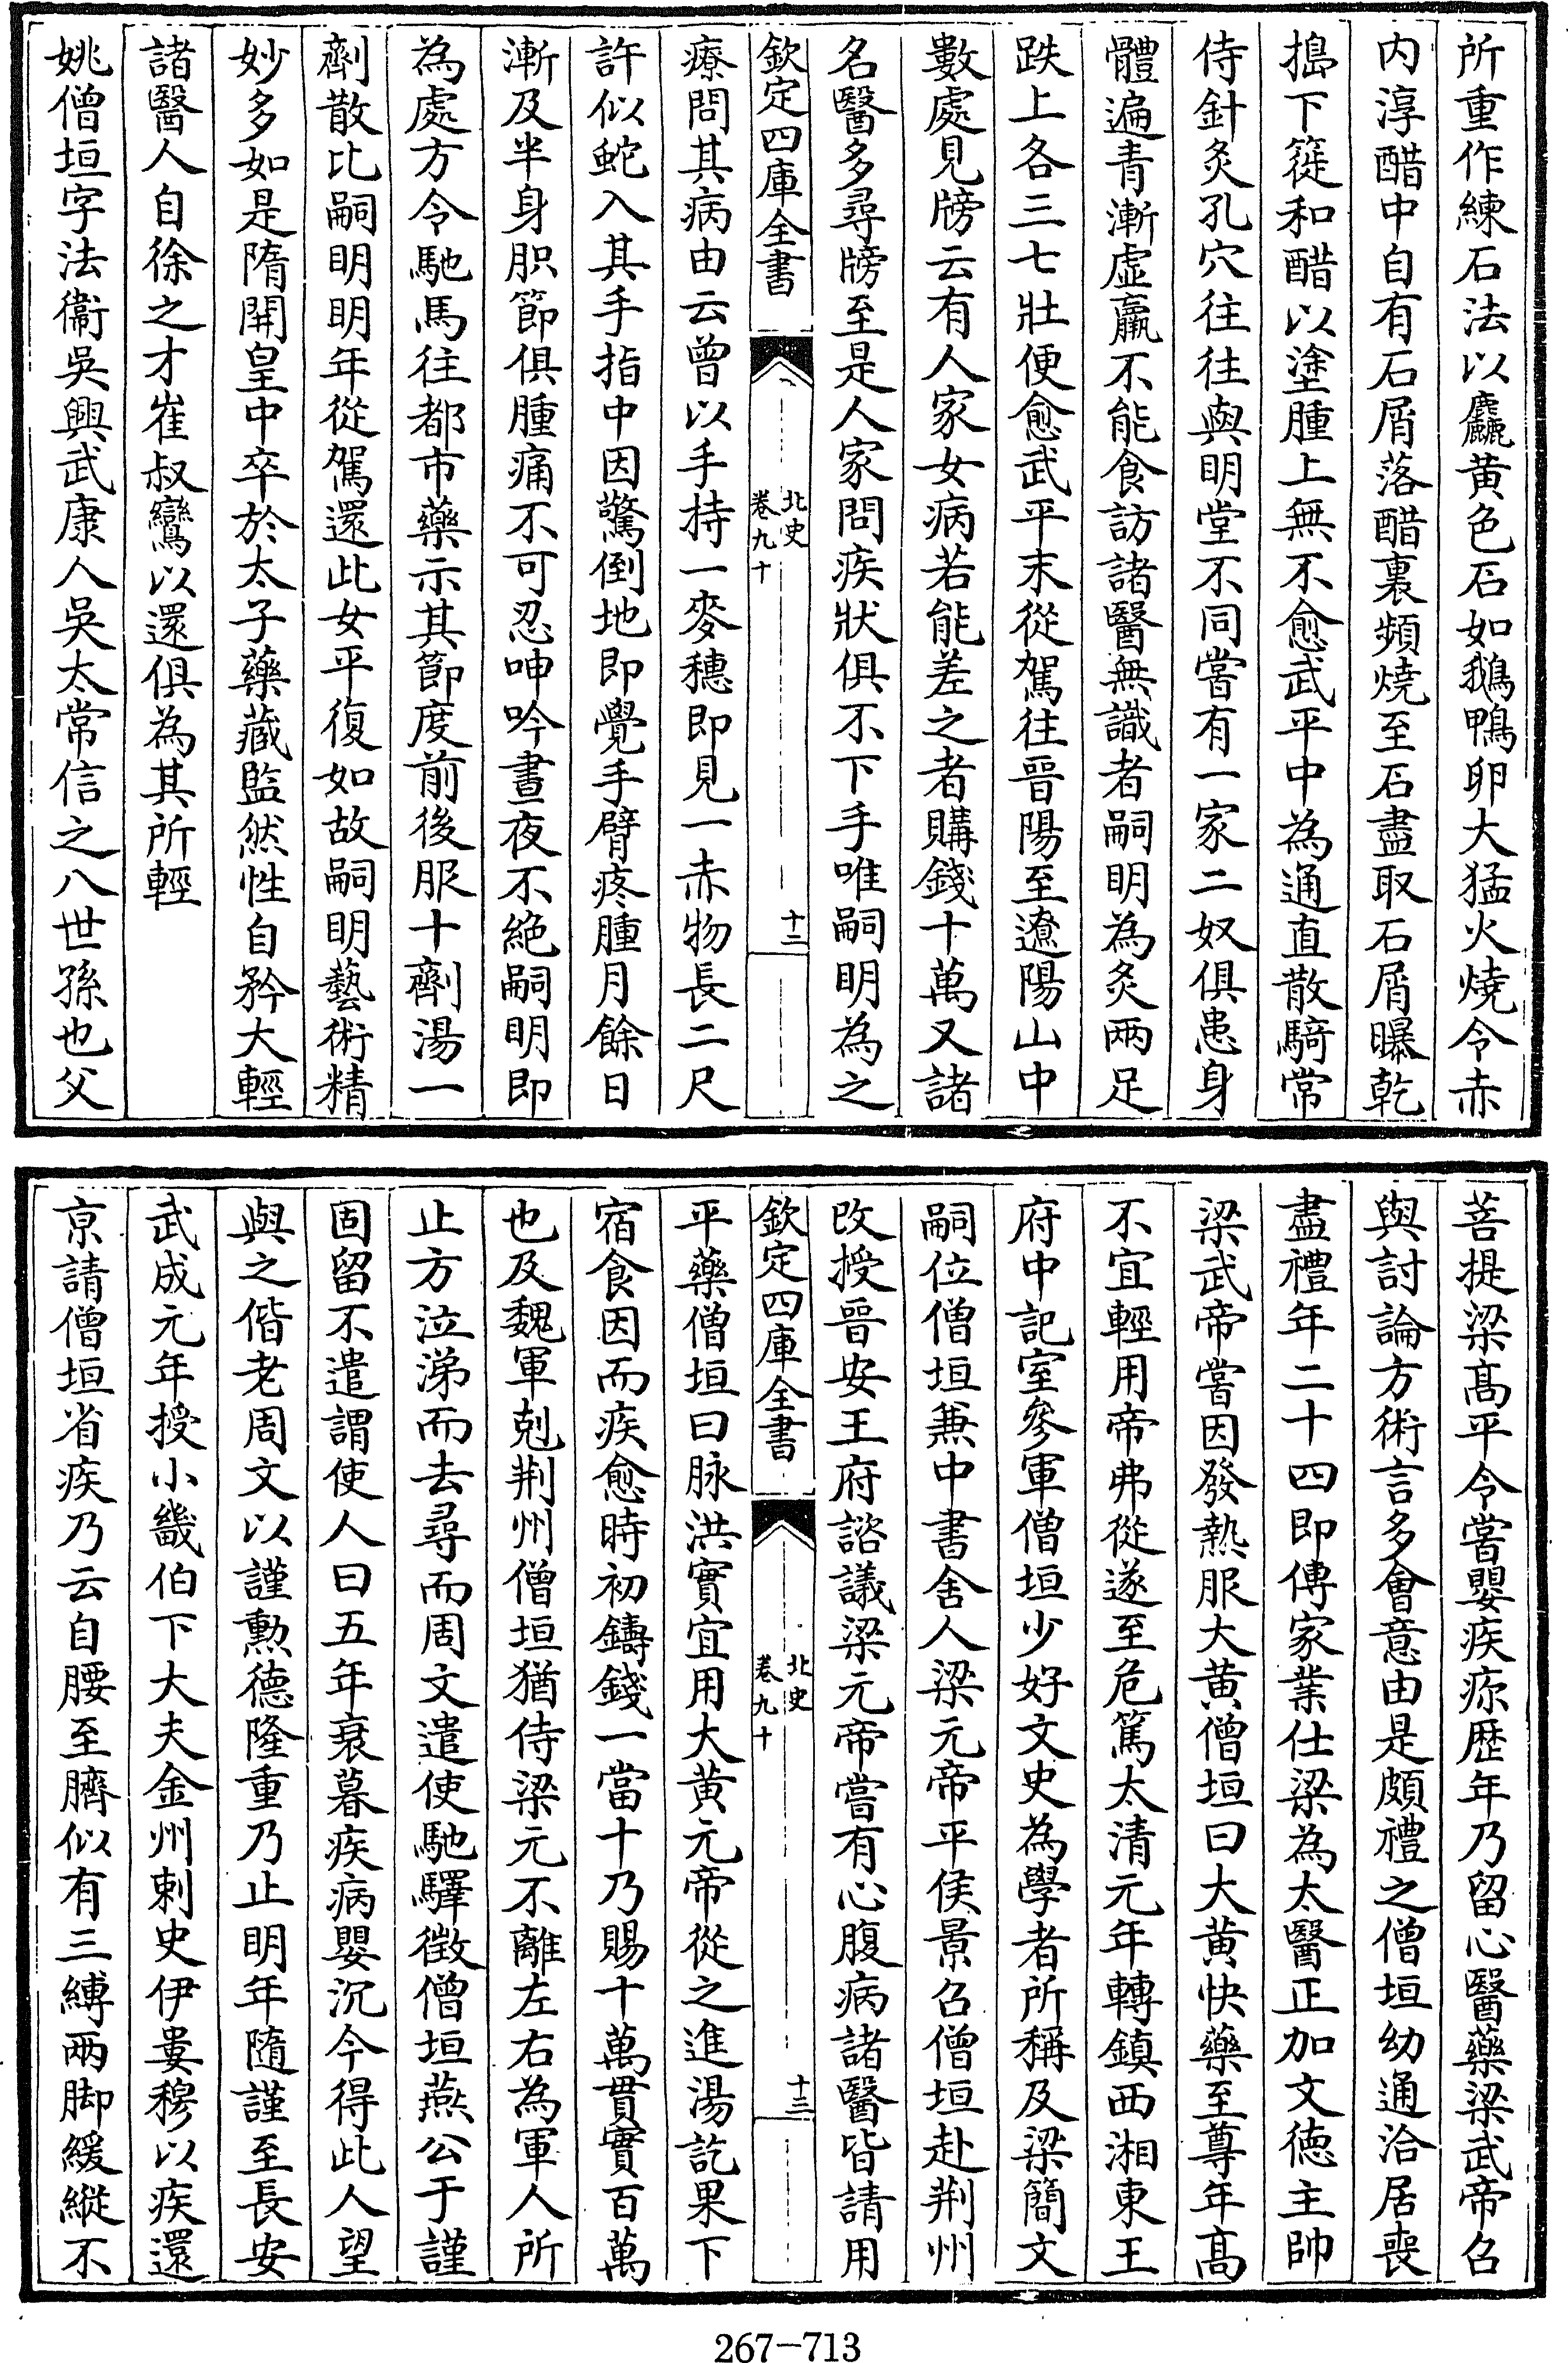 所重作練石法以麤黄色石如鵝鴨卵大猛火燒令赤
内淳醋中自有石屑落醋裏頻燒至石盡取石屑曝乾
搗下簁和醋以塗腫上無不愈武平中為通直散騎常
侍針灸孔穴往往與明堂不同嘗有一家二奴俱患身
體遍青漸虛羸不能食訪諸醫無識者嗣明為灸兩足
趺上各三七壯便愈武平末從駕往晉陽至遼陽山中
數處見牓云有人家女病若能差之者購錢十萬又諸
名醫多尋牓至是人家問疾狀俱不下手唯嗣明為之
欽定四庫全書
北史
卷九十
十二
療問其病由云曾以手持一麥穗即見一赤物長二尺
許似蛇入其手指中因驚倒地即覺手臂疼腫月餘日
漸及半身肌節俱腫痛不可忍呻吟晝夜不絶嗣明即
為處方令馳馬往都市藥示其節度前後服十劑湯一
劑散比嗣明明年從駕還此女平復如故嗣明藝術精
妙多如是隋開皇中卒於太子藥藏監然性自矜大輕
諸醫人自徐之才崔叔鸞以還俱為其所輕
姚僧垣字法衞吳興武康人吳太常信之八世孫也父
菩提梁髙平令嘗嬰疾疹歴年乃留心醫藥梁武帝召
與討論方術言多會意由是頗禮之僧垣幼通洽居喪
盡禮年二十四即傳家業仕梁為太醫正加文徳主帥
梁武帝嘗因發熱服大黄僧垣曰大黄快藥至尊年髙
不宜輕用帝弗從遂至危篤太清元年轉鎮西湘東王
府中記室參軍僧垣少好文史為學者所稱及梁簡文
嗣位僧垣兼中書舍人梁元帝平侯景召僧垣赴荆州
改授晉安王府諮議梁元帝嘗有心腹病諸醫皆請用
欽定四庫全書
北史
卷九十
十三
平藥僧垣曰脉洪實宜用大黄元帝從之進湯訖果下
宿食因而疾愈時初鑄錢一當十乃賜十萬貫實百萬
也及魏軍剋荆州僧垣猶侍梁元不離左右為軍人所
止方泣涕而去尋而周文遣使馳驛徴僧垣燕公于謹
固留不遣謂使人曰五年衰暮疾病嬰沉今得此人望
與之偕老周文以謹勲德隆重乃止明年隨謹至長安
武成元年授小畿伯下大夫金州刺史伊婁穆以疾還
京請僧垣省疾乃云自腰至臍似有三縛兩脚緩縱不
267-713